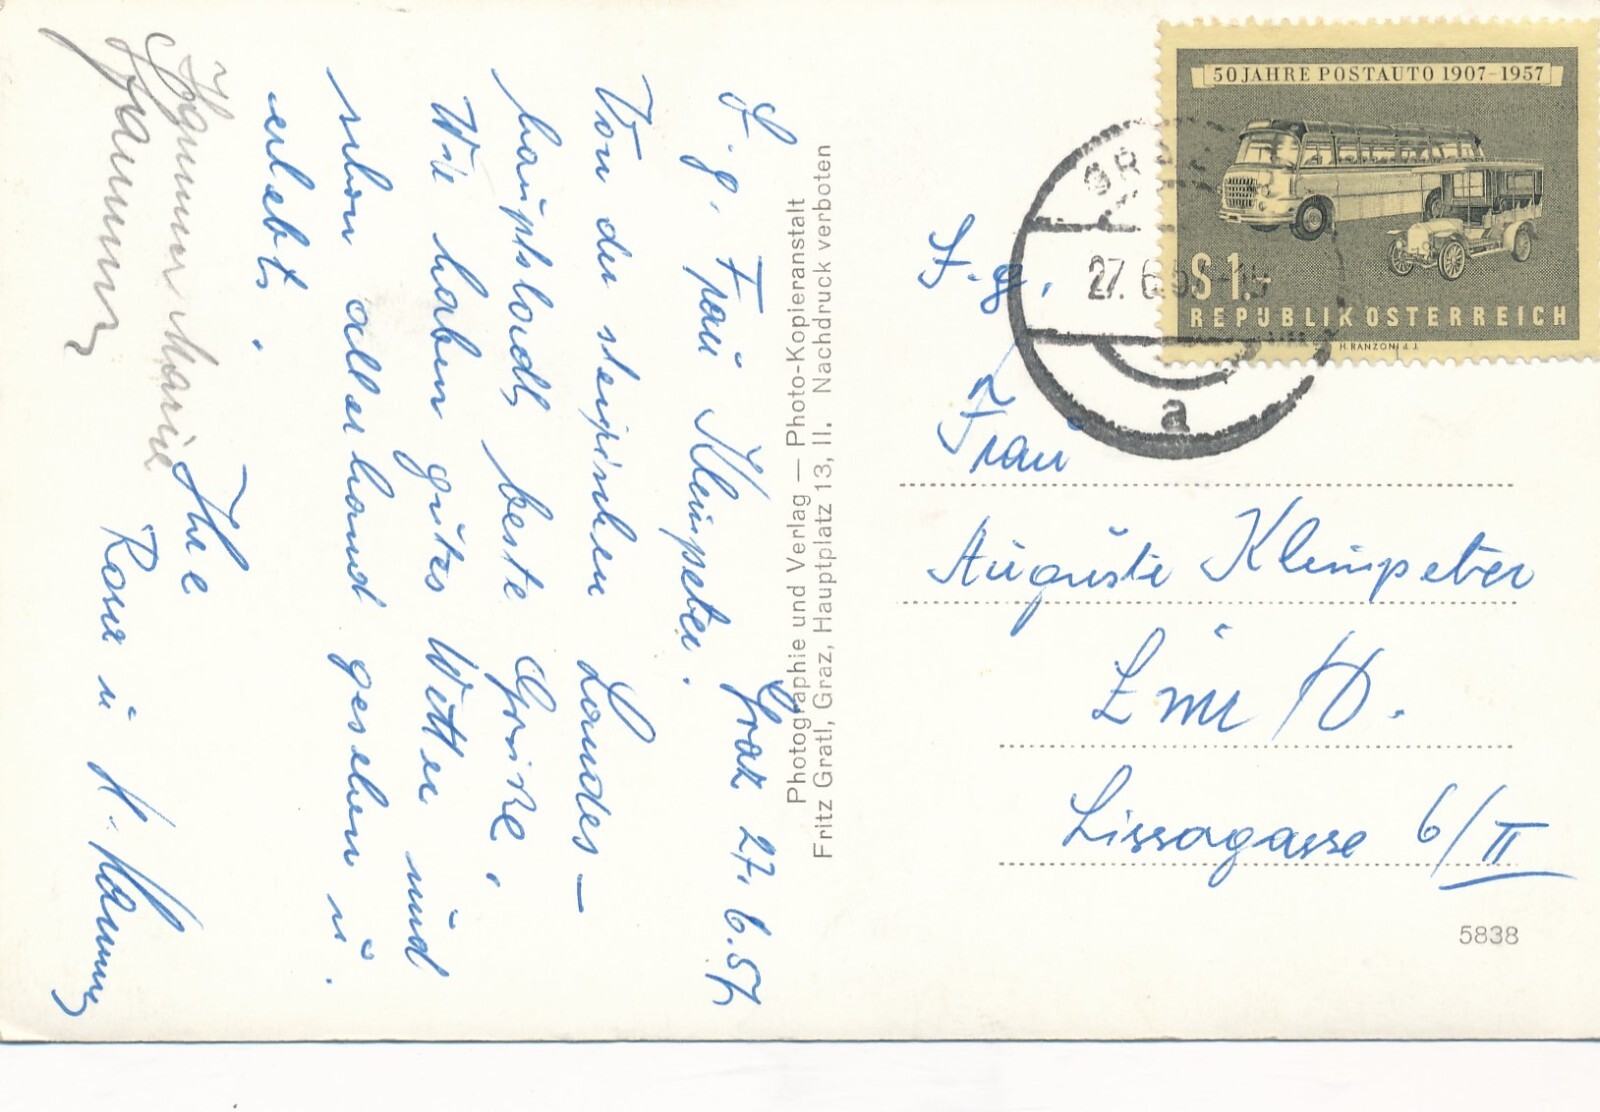 Graz 27.6.57
S.g. Frau Kleinpeter.
Von der steirischen Landes-
hauptstadt beste Grüße,
Wir haben gutes Wetter und
schon allerhand gesehen u.
erlebt.
Ihre
Photographie und Verlag — Photo-Kopieranstalt
Fritz Gratl, Graz, Hauptplatz 13, II. Nachdruck verboten
50 JAHRE POSTAUTO 1907-1957
S 1.-
REPUBLIK ÖSTERREICH
H. RANZONI d. J.
27. 6. 57-15
a
S.g.
Frau
Auguste Kleinpeter
Linz / D.
Lissagasse 6/II
5838